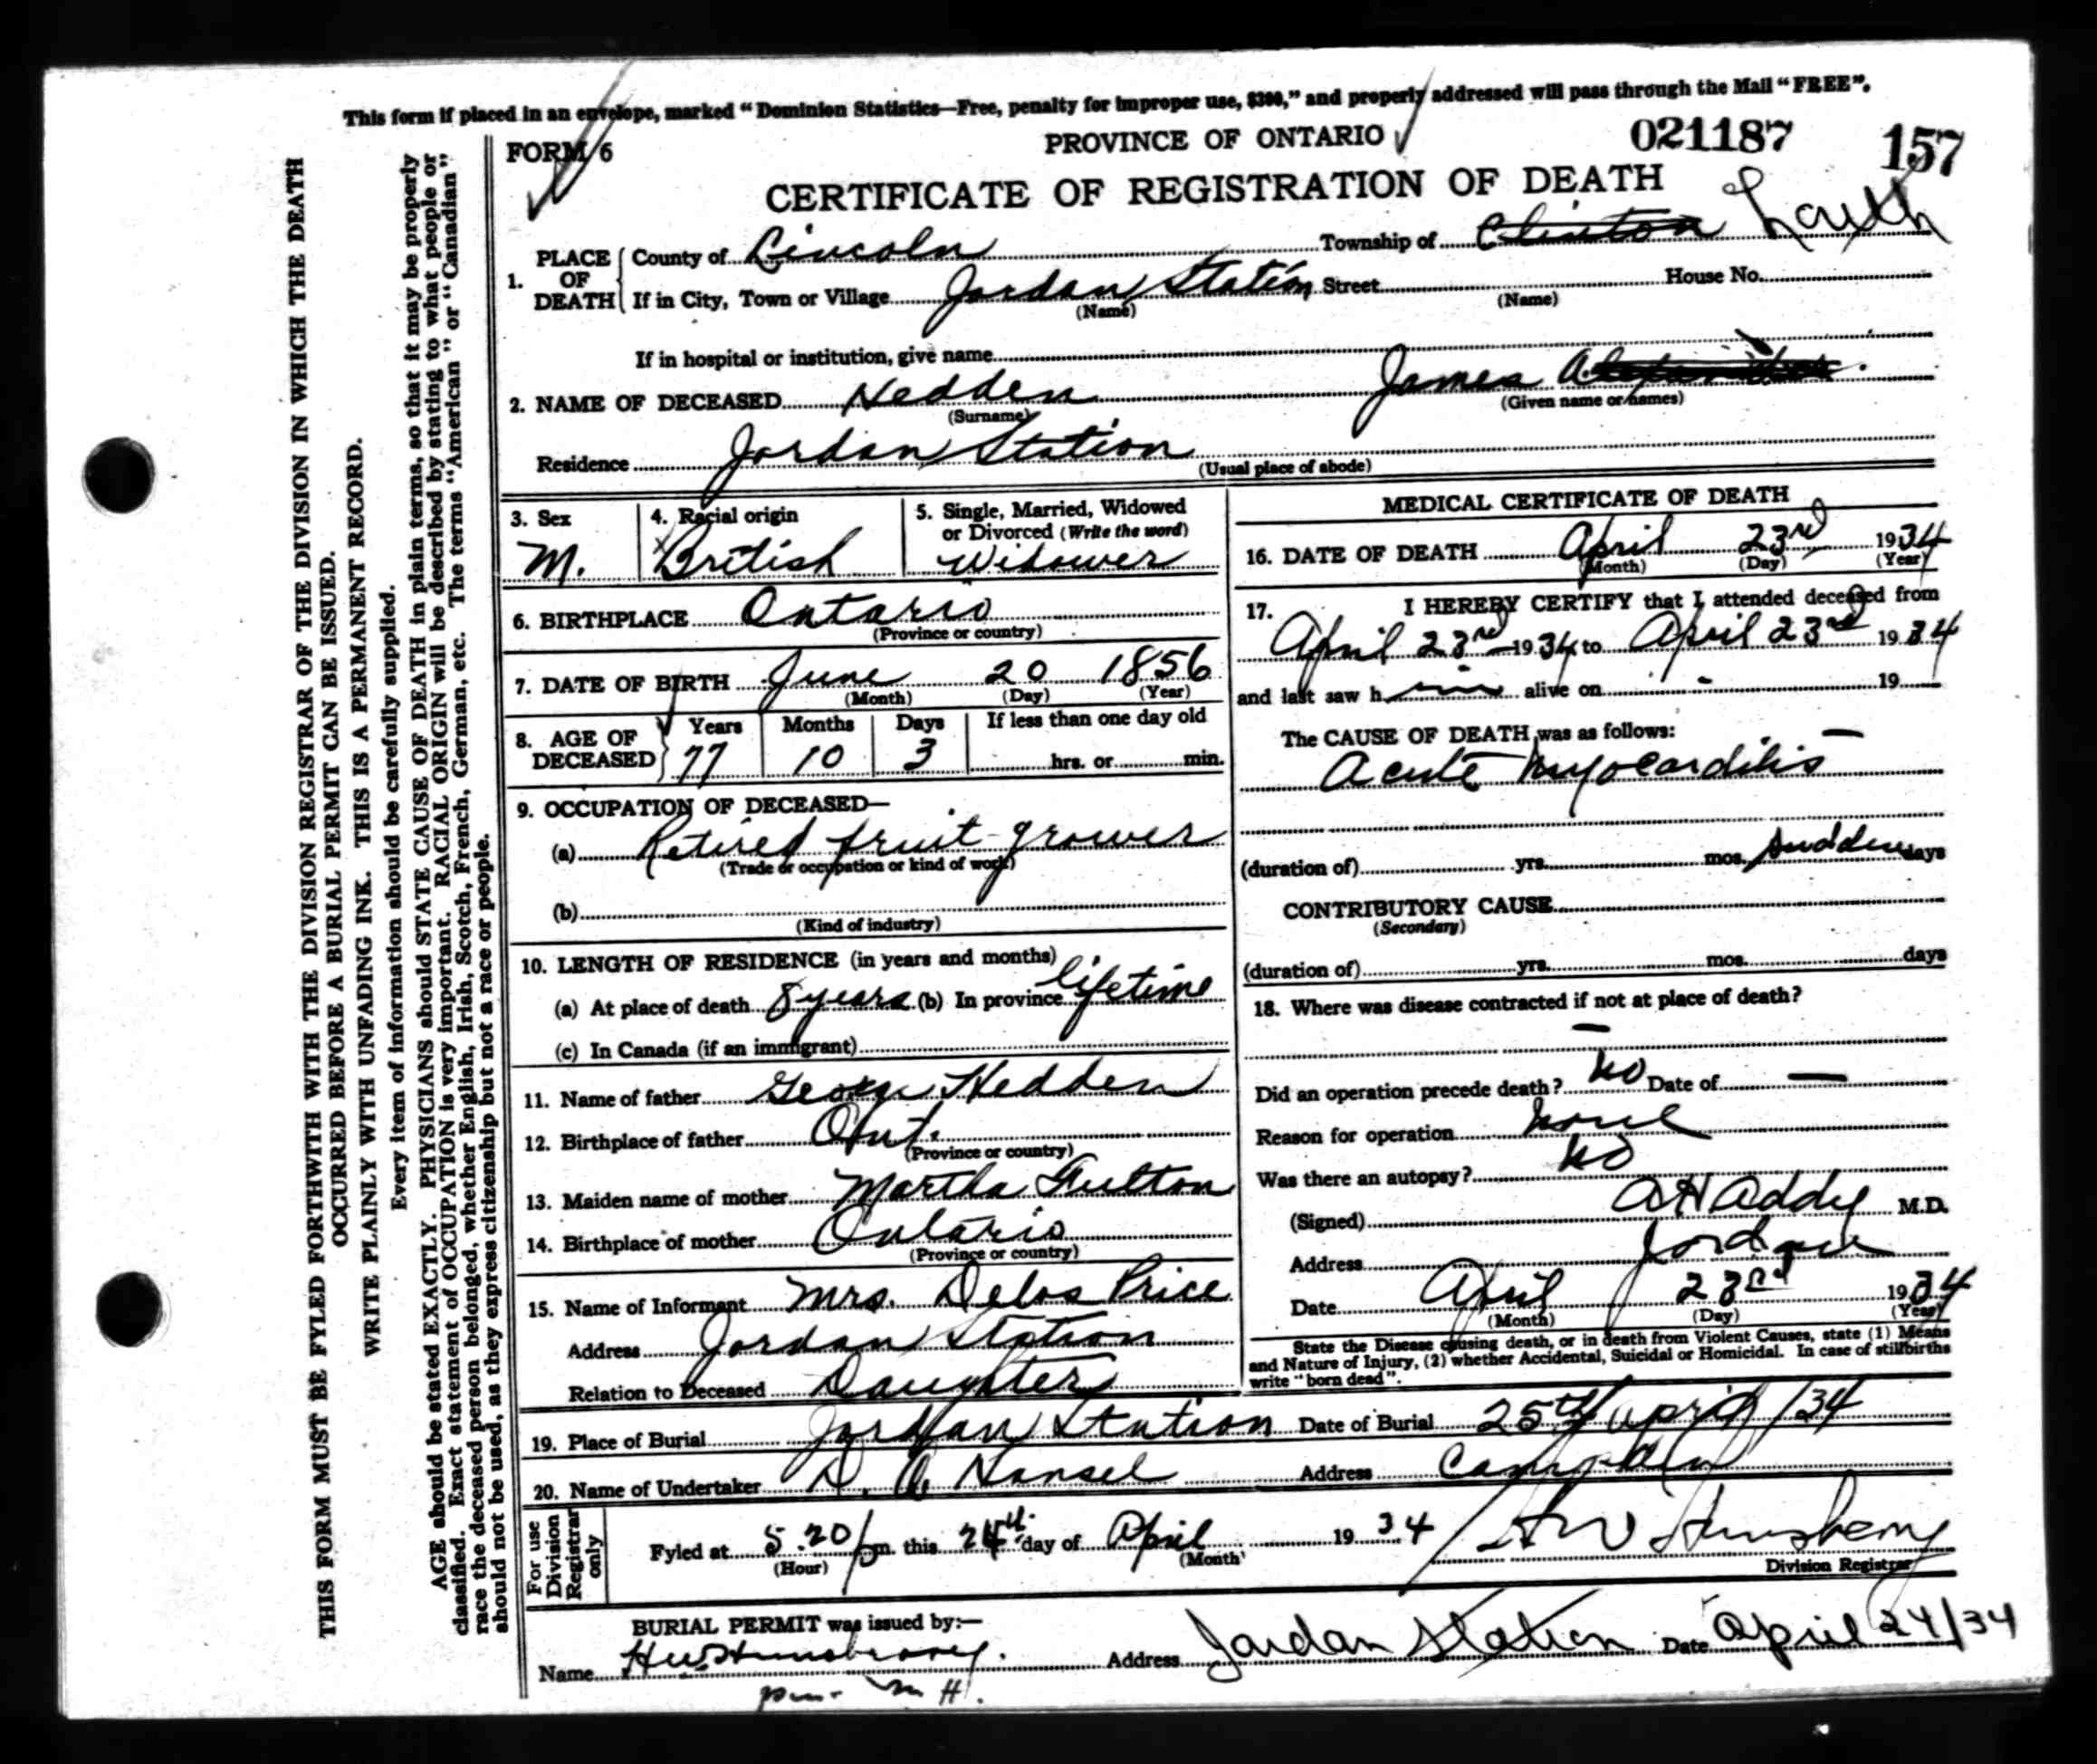 This form if placed in an envelope, marked "Dominion Statistics—Free, penalty for improper use, $300," and properly addressed will pass through the Mail "FREE".
FORM 6
PROVINCE OF ONTARIO
021187 157
CERTIFICATE OF REGISTRATION OF DEATH
1. PLACE OF DEATH County of Lincoln Township of Clinton Louth
If in City, Town or Village Jordan Station Street House No.
(Name) (Name)
If in hospital or institution, give name
2. NAME OF DECEASED Hedden James A
(Surname) (Given name or names)
Residence Jordan Station
(Usual place of abode)
3. Sex M.
4. Racial origin British
5. Single, Married, Widowed or Divorced (Write the word)
Widower
6. BIRTHPLACE Ontario
(Province or country)
7. DATE OF BIRTH June 20 1856
(Month) (Day) (Year)
8. AGE OF DECEASED Years Months Days If less than one day old
77 10 3 hrs. or min.
9. OCCUPATION OF DECEASED—
(a) Retired fruit grower
(Trade or occupation or kind of work)
(b)
(Kind of industry)
10. LENGTH OF RESIDENCE (in years and months)
(a) At place of death 8 years (b) In province lifetime
(c) In Canada (if an immigrant)
11. Name of father George Hedden
12. Birthplace of father Ont.
(Province or country)
13. Maiden name of mother Martha Fulton
14. Birthplace of mother Ontario
(Province or country)
15. Name of Informant Mrs. Delos Price
Address Jordan Station
Relation to Deceased Daughter
MEDICAL CERTIFICATE OF DEATH
16. DATE OF DEATH April 23rd 1934
(Month) (Day) (Year)
17. I HEREBY CERTIFY that I attended deceased from
April 23rd 1934 to April 23rd 1934
and last saw h im alive on - 19
The CAUSE OF DEATH was as follows:
Acute Myocarditis —
(duration of) yrs. mos. Sudden days
CONTRIBUTORY CAUSE
(Secondary)
(duration of) yrs. mos. days
18. Where was disease contracted if not at place of death?
—
Did an operation precede death? No Date of —
Reason for operation None
Was there an autopsy? No
(Signed) A H Addy M.D.
Address Jordan
Date April 23rd 1934
(Month) (Day) (Year)
State the Disease causing death, or in death from Violent Causes, state (1) Means
and Nature of Injury, (2) whether Accidental, Suicidal or Homicidal. In case of stillbirths
write "born dead".
19. Place of Burial Jordan Station Date of Burial 25th April/34
20. Name of Undertaker Hansel Address Campden
For use Division Registrar only
Fyled at 5.20 pm. this 24th day of April 1934 H W Hunsberry
(Hour) (Month) Division Registrar
BURIAL PERMIT was issued by:—
Name H W Hunsberry. Address Jordan Station Date April 24/34
per M H.
THIS FORM MUST BE FYLED FORTHWITH WITH THE DIVISION REGISTRAR OF THE DIVISION IN WHICH THE DEATH
OCCURRED BEFORE A BURIAL PERMIT CAN BE ISSUED.
WRITE PLAINLY WITH UNFADING INK. THIS IS A PERMANENT RECORD.
Every item of information should be carefully supplied.
AGE should be stated EXACTLY. PHYSICIANS should STATE CAUSE OF DEATH in plain terms, so that it may be properly
classified. Exact statement of OCCUPATION is very important. RACIAL ORIGIN will be described by stating to what people or
race the deceased person belonged, whether English, Irish, Scotch, French, German, etc. The terms "American" or "Canadian"
should not be used, as they express citizenship but not a race or people.